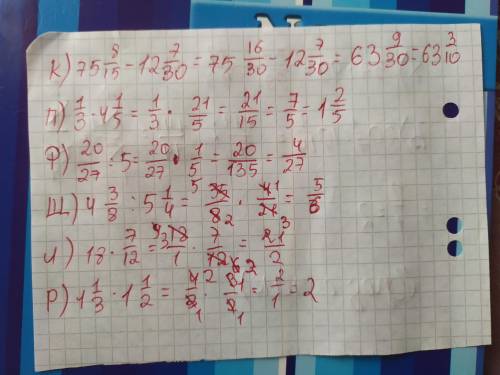 К) 75 8/15 - 12 7/30 = 75 16/30 - 12 7/30 = 63 9/30 = 63 3/10
П) 1/3 · 4 1/5 = 1/3 · 21/5 = 21/15 = 7/5 = 1 2/5
Ф) 20/27 : 5 = 20/27 · 1/5 = 20/135 = 4/27
Щ) 4 3/8 : 5 1/4 = 35/8 · 4/21 = 5/6
Л) 18 · 7/12 = 18/1 · 7/12 = 21/2
Р) 1 1/3 · 1 1/2 = 4/3 · 3/2 = 2/1 = 2